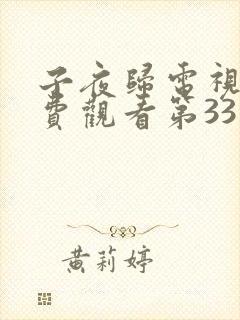 子夜歸電視
費觀看第33
黃莉婷